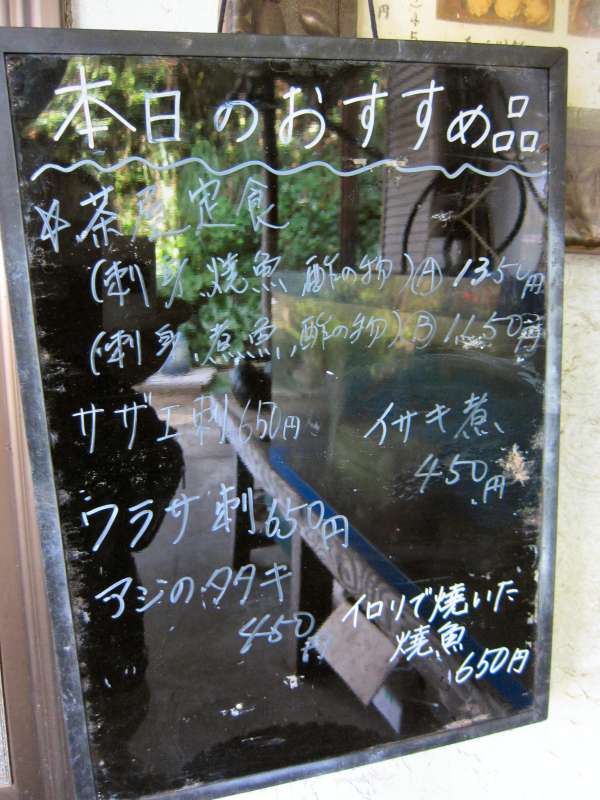 本日のおすすめ品
☆茶屋定食
(刺身、焼魚、酢の物)Ⓐ1350円
(刺身、煮魚、酢の物)Ⓑ1150円
サザエ刺650円
イサキ煮
450円
ワラサ刺650円
アジのタタキ
450円
イロリで焼いた
焼魚
650円